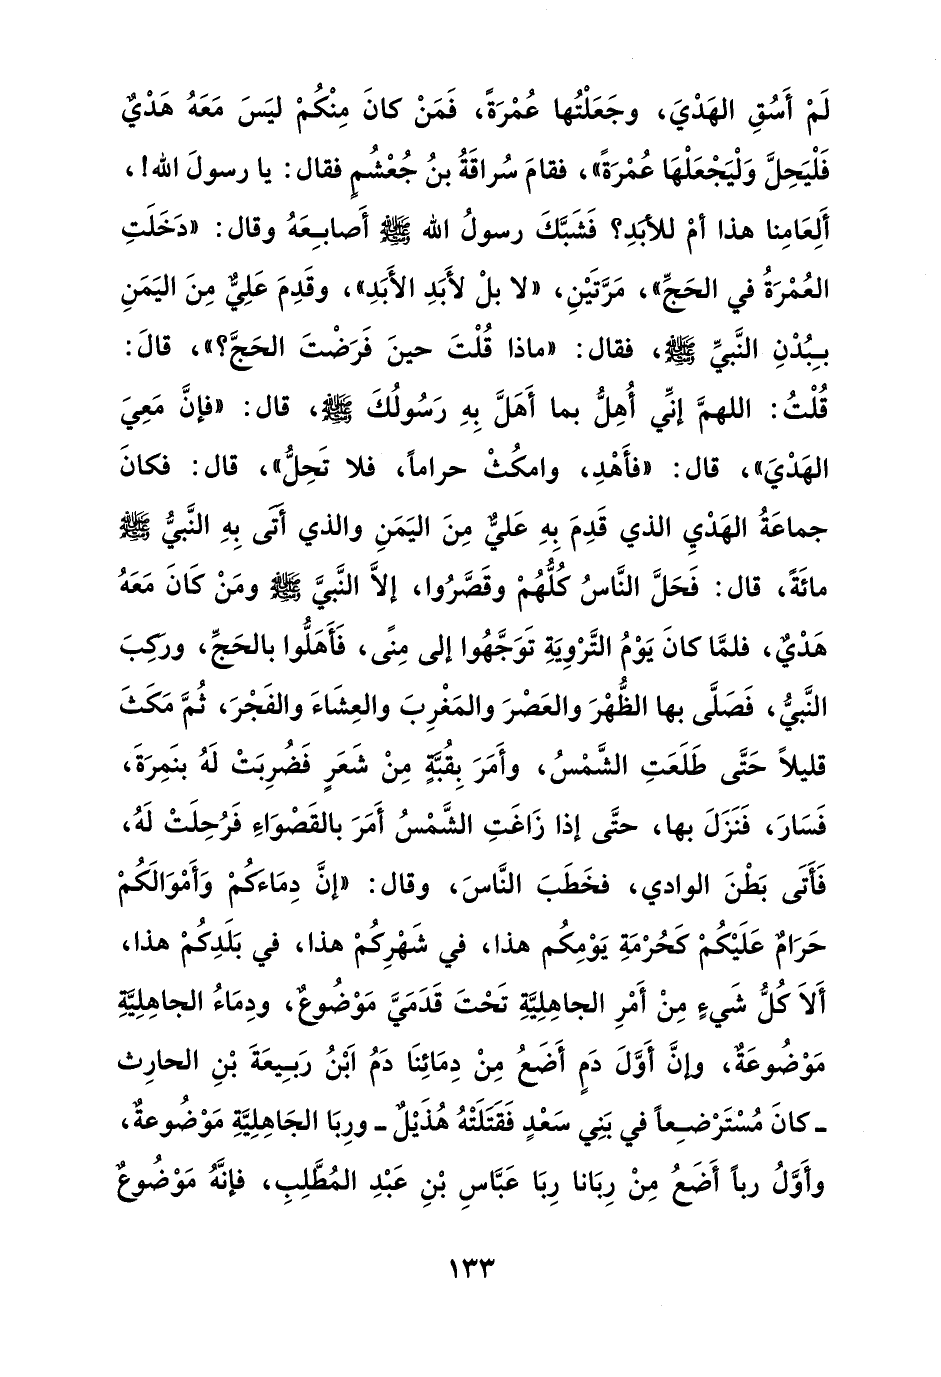 لَمْ أَسُقِ الهَدْيَ، وجَعَلْتُها عُمْرَةً، فَمَنْ كانَ مِنْكُمْ ليَسَ مَعَهُ هَدْيٌ
فَلْيَحِلَّ وَلْيَجْعَلْهَا عُمْرَةً»، فقامَ سُراقَةُ بنُ جُعْشُمٍ فقال: يا رسولَ الله!،
أَلِعَامِنا هذا أمْ للأبَدِ؟ فَشَبَّكَ رسولُ الله ﷺ أَصابِعَهُ وقال: «دَخَلَتِ
العُمْرَةُ في الحَجِّ»، مَرَّتَيْنِ، «لا بلْ لأَبَدِ الأَبَدِ»، وقَدِمَ عَلِيٌّ مِنَ اليَمَنِ
بِبُدْنِ النَّبيِّ ﷺ، فقال: «ماذا قُلْتَ حينَ فَرَضْتَ الحَجَّ؟»، قالَ:
قُلْتُ: اللهمَّ إنِّي أُهِلُّ بما أَهَلَّ بِهِ رَسُولُكَ ﷺ، قال: «فإنَّ مَعِيَ
الهَدْيَ»، قال: «فأَهْدِ، وامكُثْ حراماً، فلا تَحِلُّ»، قال: فكانَ
جماعَةُ الهَدْيِ الذي قَدِمَ بِهِ عَليٌّ مِنَ اليَمَنِ والذي أَتَى بِهِ النَّبيُّ ﷺ
مائَةً، قال: فَحَلَّ النَّاسُ كُلُّهُمْ وقَصَّرُوا، إلاَّ النَّبيَّ ﷺ ومَنْ كَانَ مَعَهُ
هَدْيٌ، فلمَّا كانَ يَوْمُ التَّرْوِيَةِ تَوَجَّهُوا إلى مِنًى، فَأَهَلُّوا بالحَجِّ، وركِبَ
النَّبيُّ، فَصَلَّى بها الظُّهْرَ والعَصْرَ والمَغْرِبَ والعِشَاءَ والفَجْرَ، ثُمَّ مَكَثَ
قليلاً حَتَّى طَلَعَتِ الشَّمْسُ، وأَمَرَ بِقُبَّةٍ مِنْ شَعَرٍ فَضُرِبَتْ لَهُ بنَمِرَةَ،
فَسَارَ، فَنَزَلَ بها، حتَّى إذا زَاغَتِ الشَّمْسُ أَمَرَ بالقَصْوَاءِ فَرُحِلَتْ لَهُ،
فَأَتَى بَطْنَ الوادي، فخَطَبَ النَّاسَ، وقال: «إنَّ دِمَاءكُمْ وَأَمْوَالَكُمْ
حَرَامٌ عَلَيْكُمْ كَحُرْمَةِ يَوْمِكُم هذا، في شَهْرِكُمْ هذا، في بَلَدِكُمْ هذا،
أَلاَ كُلُّ شَيءٍ مِنْ أَمْرِ الجاهِليَّةِ تَحْتَ قَدَمَيَّ مَوْضُوعٌ، ودِمَاءُ الجاهِليَّةِ
مَوْضُوعَةٌ، وإنَّ أَوَّلَ دَمٍ أَضَعُ مِنْ دِمَائِنَا دَمُ ابْنُ رَبيعَةَ بْنِ الحارِث
ـ كانَ مُسْتَرْضِعاً في بَنِي سَعْدٍ فَقَتَلَتْهُ هُذَيْلٌ ـ ورِبَا الجَاهِلِيَّةِ مَوْضُوعةٌ،
وأَوَّلُ رباً أَضَعُ مِنْ رِبَانا رِبَا عَبَّاسِ بْنِ عَبْدِ المُطَّلِبِ، فإنَّهُ مَوْضُوعٌ
١٣٣